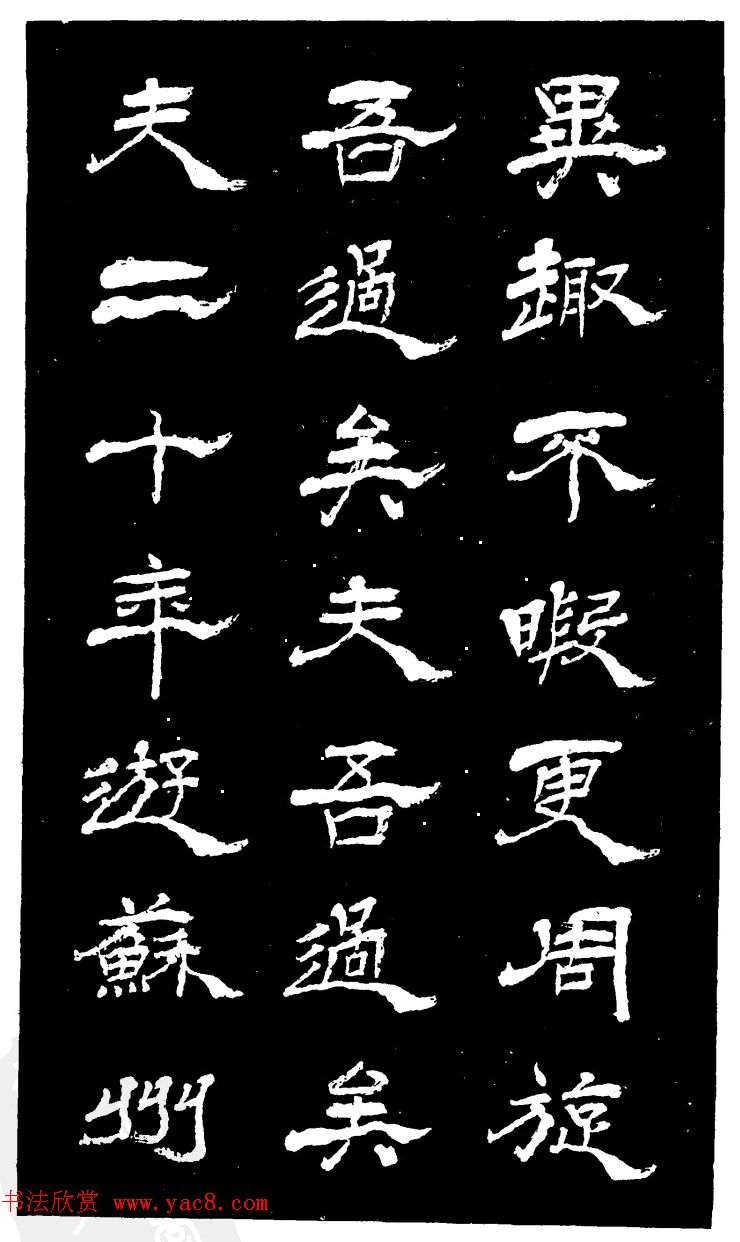 異趣不暇更周旋
吾過矣夫吾過矣
夫二十年遊蘇州
书法欣赏 www.yac8.com